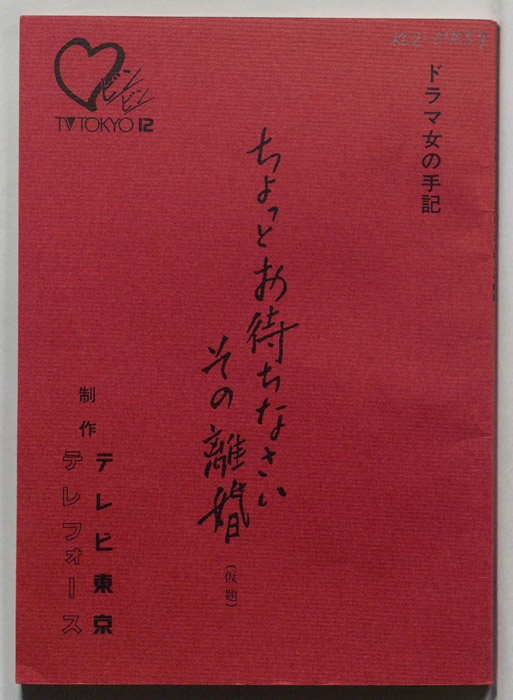 ドラマ女の手記
ちょっとお待ちなさい
その離婚
(仮題)
ビンビン
TV TOKYO 12
制作
テレビ東京
テレフォース